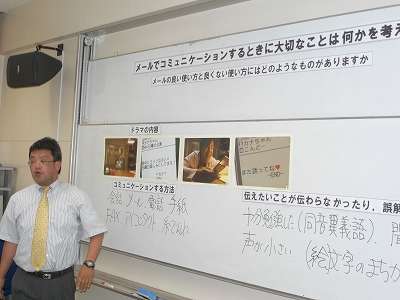 メールでコミュニケーションするときに大切なことは何かを考え
メールの良い使い方と良くない使い方にはどのようなものがありますか
ドラマの内容
また誘ってね
-END-
コミュニケーションする方法
会話 メール 電話 手紙
FAX アイコンタクト
伝えたいことが伝わらなかったり、誤解
十分勉強した(同音異義語)
声が小さい (絵)文字のまちが